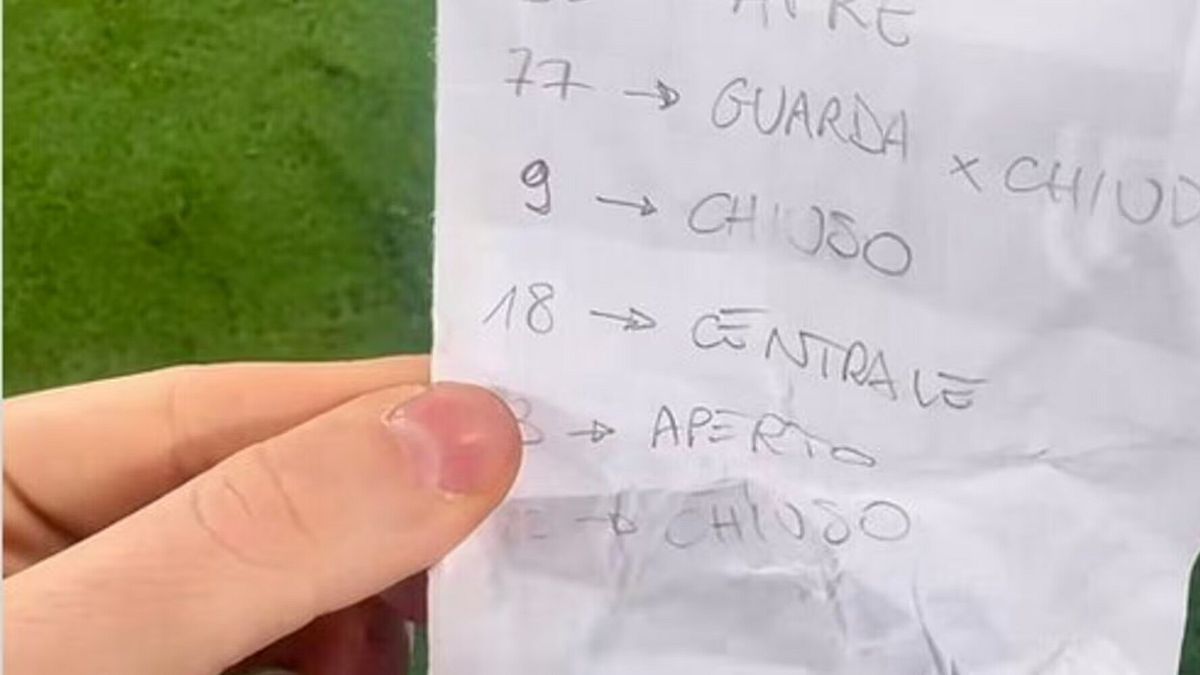 APRE
77 → GUARDA × CHIUD
9 → CHIUSO
18 → CENTRALE
8 → APERTO
→ CHIUSO